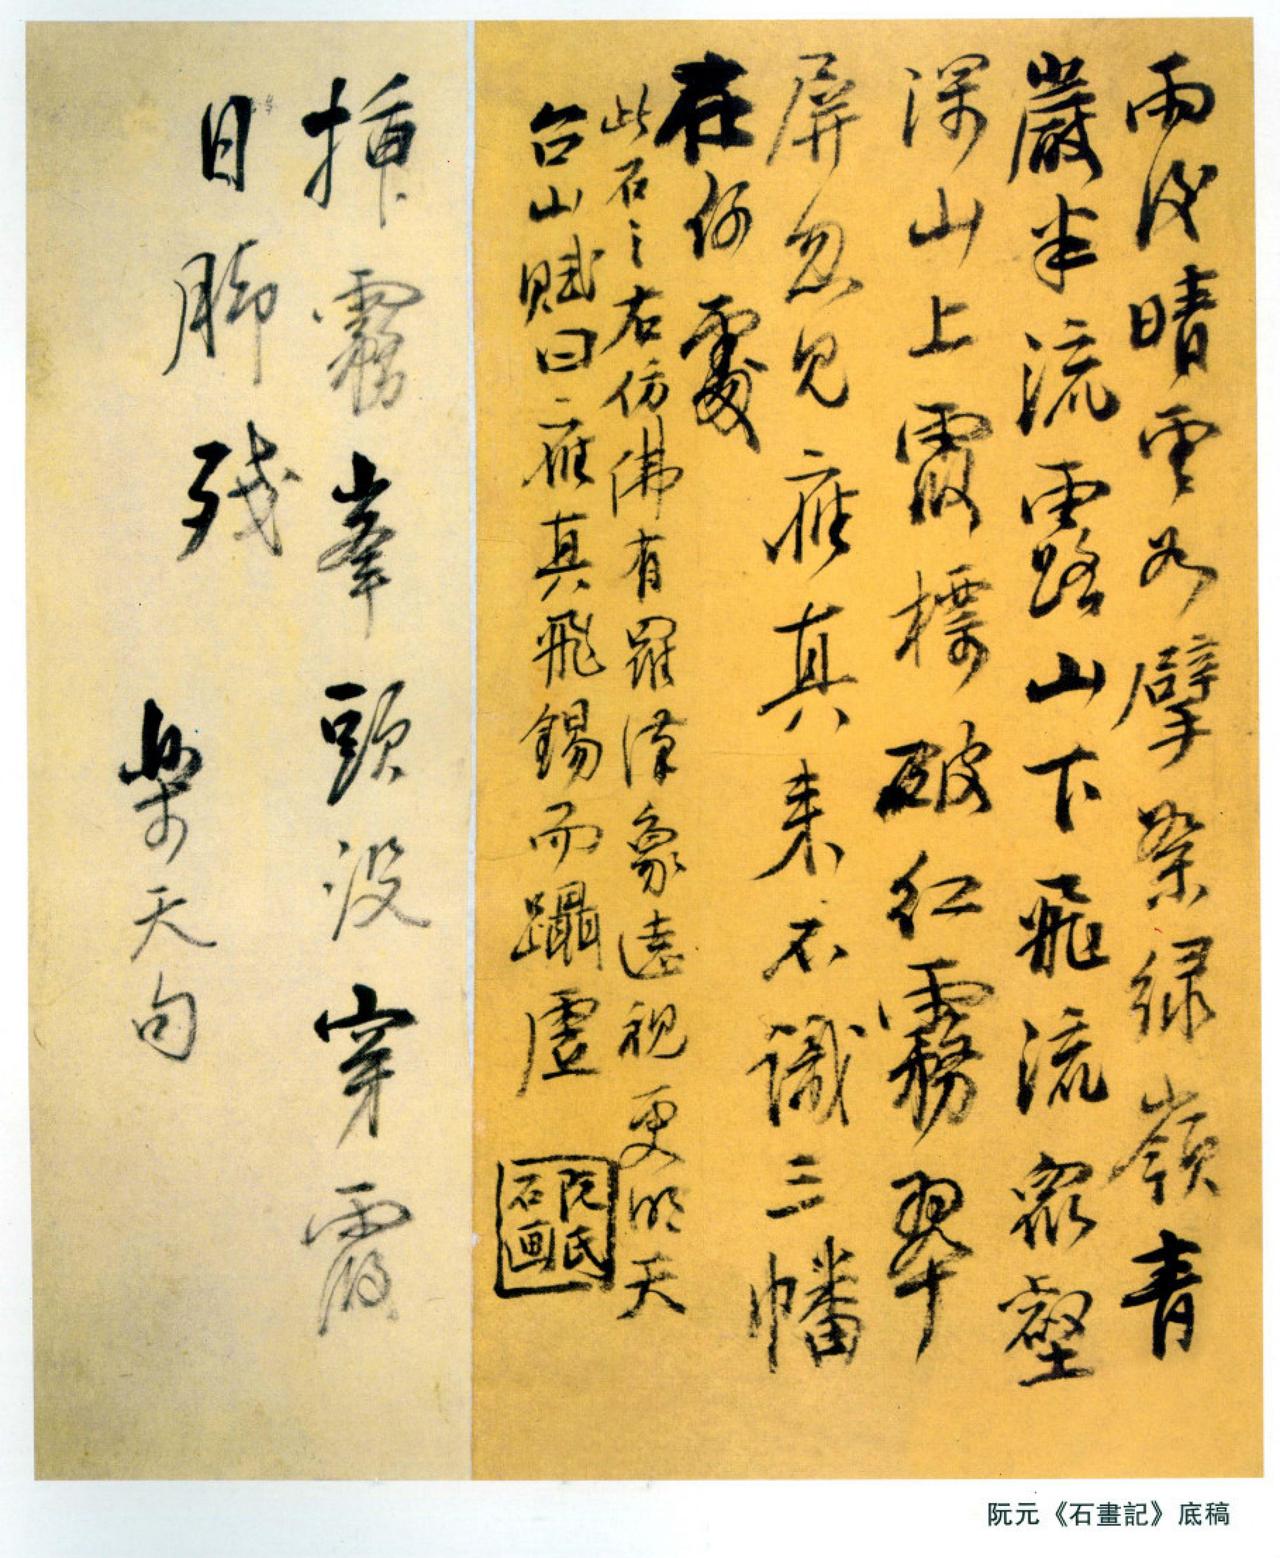 雨後晴雲如擘絮緑嶺青
巖半流露山下飛流眾壑
深山上霞標破紅霧翠
屏忽見應真來不識三幡
在何處
此石之右仿佛有羅漢象遠視更明天
台山賦曰應真飛錫而躡虛
阮氏
石画
插霧峯頭没穿霞
日脚殘
樂天句
阮元《石畫記》底稿